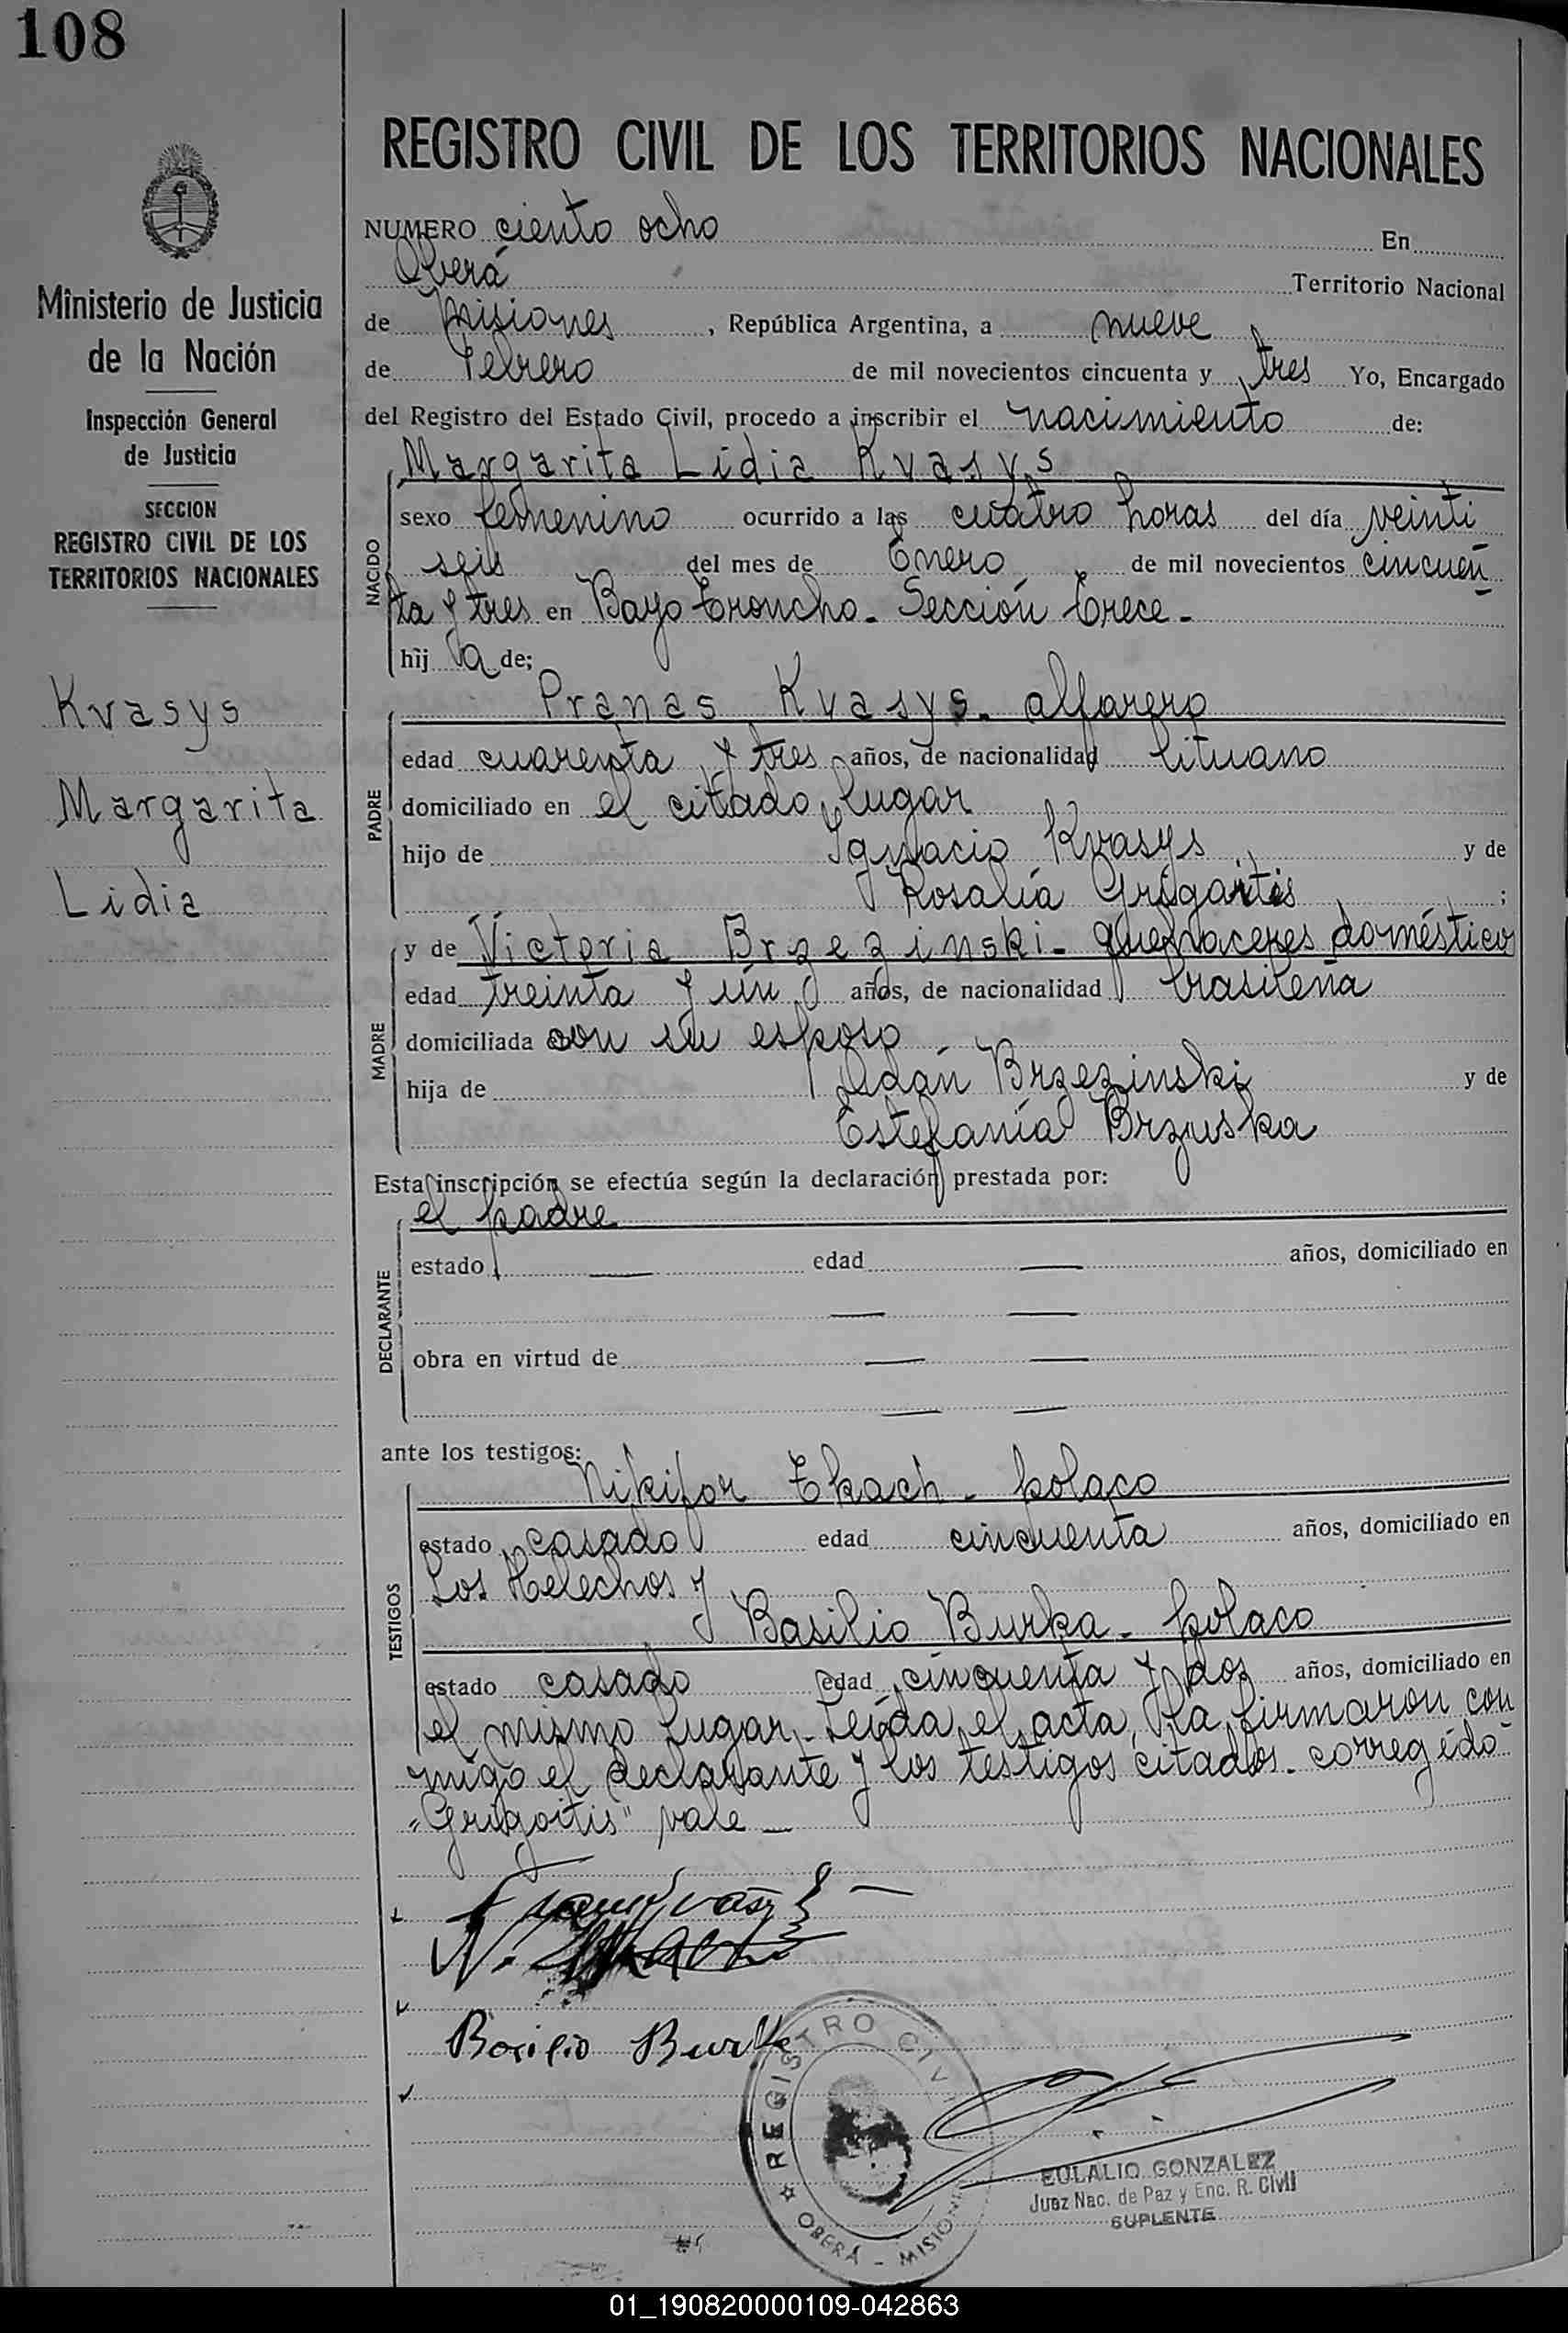 108
REGISTRO CIVIL DE LOS TERRITORIOS NACIONALES
Ministerio de Justicia
de la Nación
Inspección General
de Justicia
SECCION
REGISTRO CIVIL DE LOS
TERRITORIOS NACIONALES
Kvasys
Margarita
Lidia
NUMERO ciento ocho En
Oberá Territorio Nacional
de Misiones, República Argentina, a nueve
de Febrero de mil novecientos cincuenta y tres Yo, Encargado
del Registro del Estado Civil, procedo a inscribir el nacimiento de:
Margarita Lidia Kvasys
NACIDO
sexo femenino ocurrido a las cuatro horas del día veinti
seis del mes de Enero de mil novecientos cincuen
ta y tres en Bayo Troncho. Sección Trece.
hij a de;
Pranas Kvasys. alfarero
PADRE
edad cuarenta y tres años, de nacionalidad lituano
domiciliado en el citado lugar
hijo de Ignacio Kvasys y de
Rosalía Grigaitis ;
y de Victoria Brzezinski. quehaceres doméstico
MADRE
edad treinta y un años, de nacionalidad brasileña
domiciliada con su esposo
hija de Adán Brzezinski y de
Estefanía Brzuska
Esta inscripción se efectúa según la declaración prestada por:
el padre
DECLARANTE
estado — edad — años, domiciliado en
— —
obra en virtud de — —
— —
ante los testigos:
Nikifor Tkach. polaco
TESTIGOS
estado casado edad cincuenta años, domiciliado en
Los Helechos y
Basilio Burka. polaco
estado casado edad cincuenta y dos años, domiciliado en
el mismo lugar. Leída el acta, la firmaron con
migo el declarante y los testigos citados. corregido
"Grigoitis" vale —
Basilio Burka
REGISTRO CIVIL
OBERÁ - MISIONES
EULALIO GONZALEZ
Juez Nac. de Paz y Enc. R. Civil
SUPLENTE
01_190820000109-042863